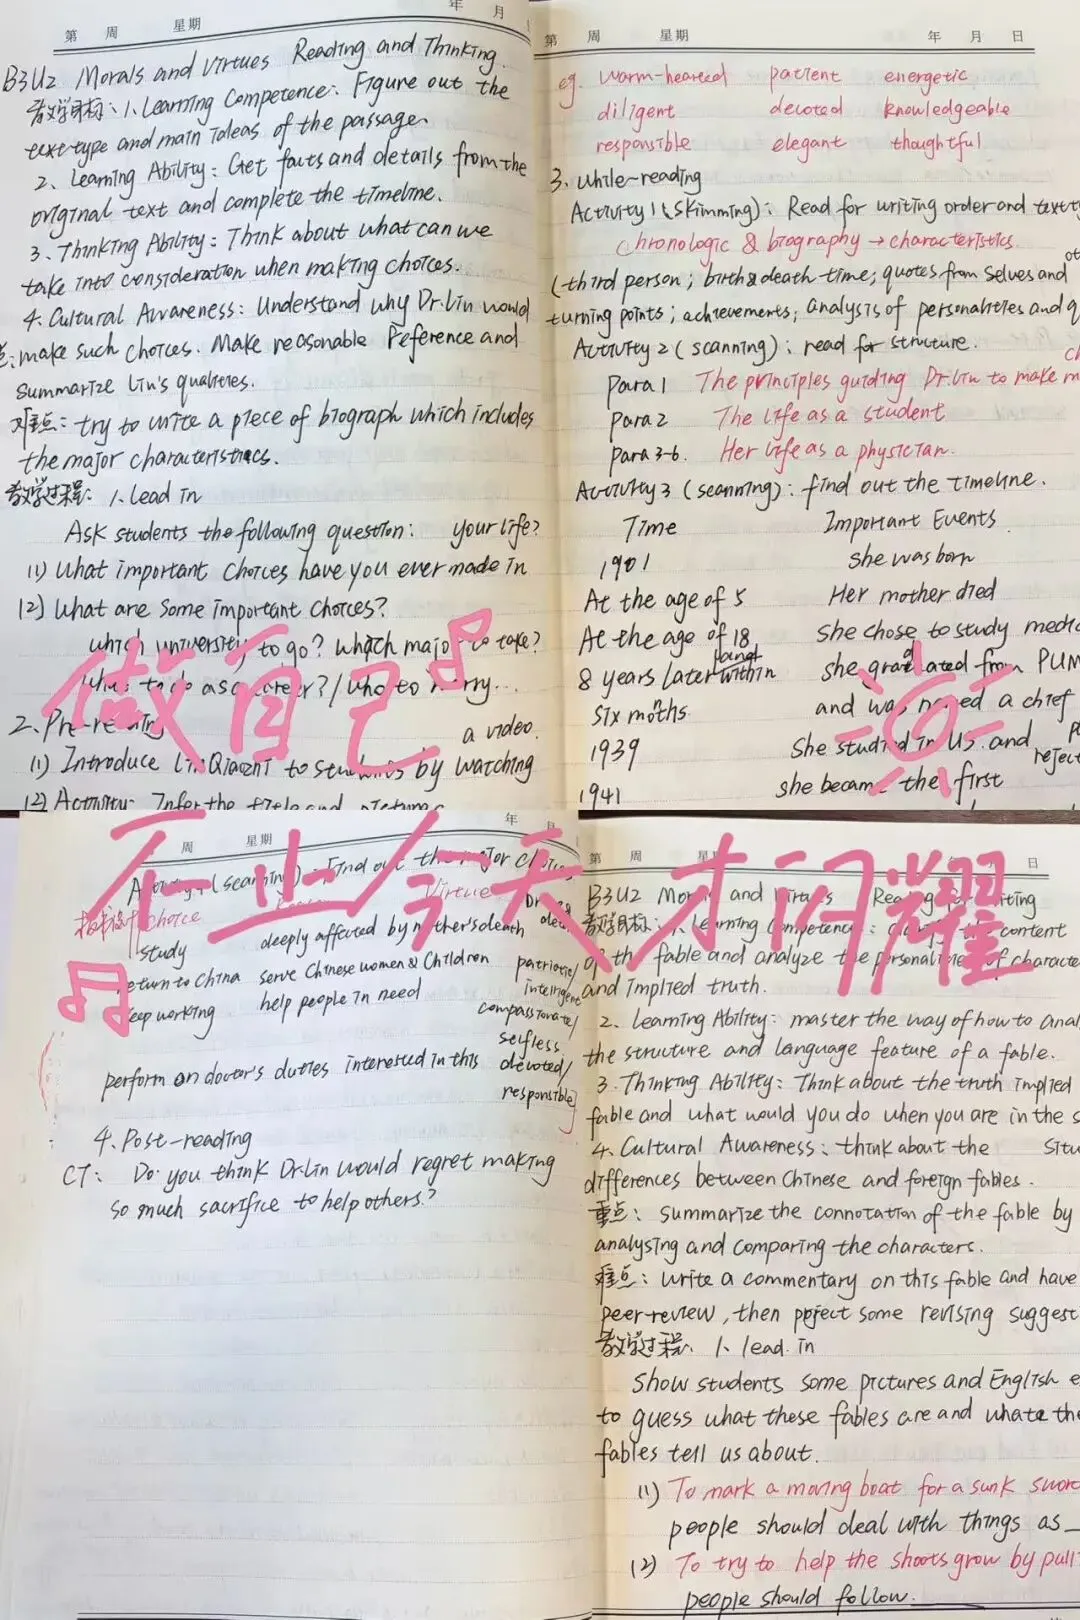 年 月
第 周 星期
B3U2 Morals and Virtues Reading and Thinking.
教学目标: 1. Learning Competence: Figure out the
text type and main ideas of the passage.
2. Learning Ability: Get facts and details from the
original text and complete the timeline.
3. Thinking Ability: Think about what can we
take into consideration when making choices.
4. Cultural Awareness: Understand why Dr.Lin would
make such choices. Make reasonable Peference and
summarize Lin's qualities.
难重点: try to write a piece of biograph which includes
the major characteristics.
教学过程: 1. Lead in
Ask students the following question: your life?
(1) What important choices have you ever made in
(2) What are some important choices?
which university to go? which major to take?
as a career? / who to marry...
2. Pre-reading a video.
(1) Introduce Lin Qiaozhi to students by watching
(2) Activity: Infer the title and pictures
第 周 星期 年 月 日
eg. warm-hearted patient energetic
diligent devoted knowledgeable
responsible elegant thoughtful
3. While-reading
Activity 1 (skimming): Read for writing order and text ty
Chronologic & biography → characteristics.
(third person; birth & death time; quotes from selves and ot
turning points; achievements; analysis of personalities and q
Activity 2 (scanning): read for structure.
Para 1 The principles guiding Dr.Lin to make m ch
Para 2 The life as a student
Para 3-6. Her life as a physician.
Activity 3 (scanning): find out the timeline.
Time Important Events
1901 She was born
At the age of 5 Her mother died
At the age of 18 She chose to study medic
8 years later and within she graduated from PUM
six months and was named a chief
1939 She studied in US and reject
1941 she became the first
做自己
周 星期 年
Activity 4 (scanning): Find out the major choices
Choice Virtue
study deeply affected by mother's death
return to China serve Chinese women & children patriotic/
keep working help people in need intelligent
compassionate/
selfless
perform on doctor's duties interested in this devoted/
responsible
4. Post-reading
CT: Do you think Dr.Lin would regret making
so much sacrifice to help others?
不止今天才闪耀
第 周 星期 日
B3U2 Morals and Virtues Reading for Writing
教学目标: 1. Learning Competence: content
of the fable and analyze the personalities of characte
and implied truth.
2. Learning Ability: master the way of how to anal
the structure and language feature of a fable.
3. Thinking Ability: Think about the truth implied
fable and what would you do when you are in the s
4. Cultural Awareness: think about the situ
differences between Chinese and foreign fables.
重点: summarize the connotation of the fable by
analysing and comparing the characters.
难点: write a commentary on this fable and have
peer-review, then project some revising suggest
教学过程: 1. lead in
Show students some pictures and English e
to guess what these fables are and whate the
fables tell us about.
(1) To mark a moving boat for a sunk sword
people should deal with things as
(2) To try to help the shoots grow by pull
people should follow.